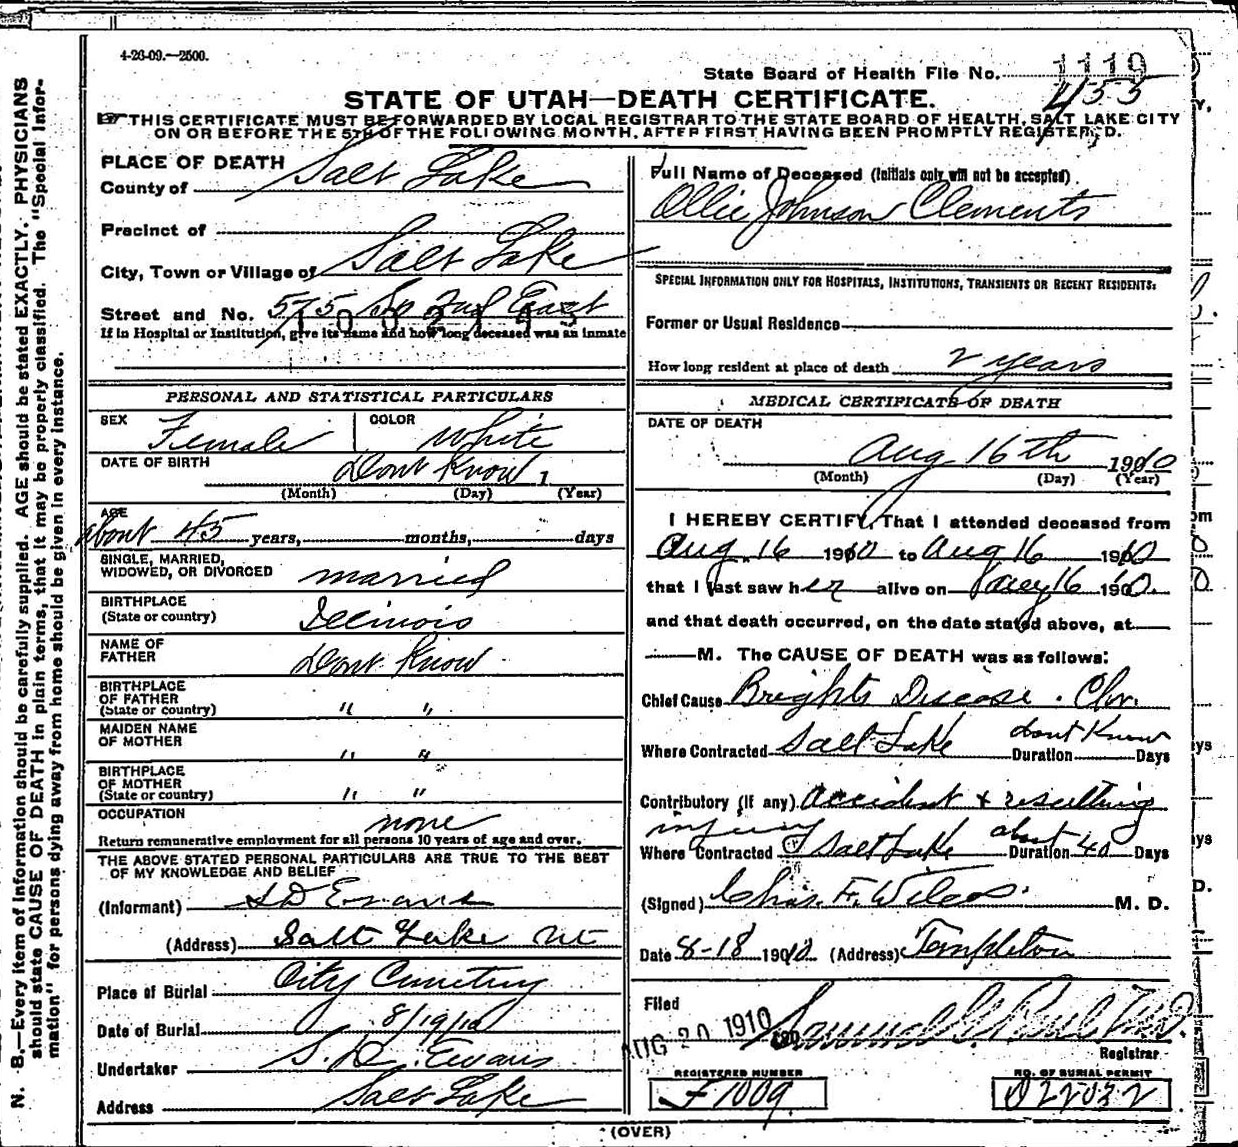 4-26-09.—2500.
State Board of Health File No. 1119
433
STATE OF UTAH—DEATH CERTIFICATE.
THIS CERTIFICATE MUST BE FORWARDED BY LOCAL REGISTRAR TO THE STATE BOARD OF HEALTH, SALT LAKE CITY
ON OR BEFORE THE 5TH OF THE FOLLOWING MONTH, AFTER FIRST HAVING BEEN PROMPTLY REGISTERED.
PLACE OF DEATH
County of Salt Lake
Precinct of
City, Town or Village of Salt Lake
Street and No. 575 So 2nd East
If in Hospital or Institution, give its name and how long deceased was an inmate
PERSONAL AND STATISTICAL PARTICULARS
SEX Female COLOR White
DATE OF BIRTH Dont Know 1
(Month) (Day) (Year)
AGE
about 45 years, months, days
SINGLE, MARRIED,
WIDOWED, OR DIVORCED married
BIRTHPLACE
(State or country) Illinois
NAME OF
FATHER Dont Know
BIRTHPLACE
OF FATHER
(State or country) " "
MAIDEN NAME
OF MOTHER " "
BIRTHPLACE
OF MOTHER
(State or country) " "
OCCUPATION none
Return remunerative employment for all persons 10 years of age and over.
THE ABOVE STATED PERSONAL PARTICULARS ARE TRUE TO THE BEST
OF MY KNOWLEDGE AND BELIEF
(Informant) S D Evans
(Address) Salt Lake Ut
Place of Burial City Cemetery
Date of Burial 8/19/10
Undertaker S. D. Evans
Address Salt Lake
Full Name of Deceased (Initials only will not be accepted)
Ollie Johnson Clements
SPECIAL INFORMATION ONLY FOR HOSPITALS, INSTITUTIONS, TRANSIENTS OR RECENT RESIDENTS:
Former or Usual Residence
How long resident at place of death 2 years
MEDICAL CERTIFICATE OF DEATH
DATE OF DEATH
Aug 16th 1910
(Month) (Day) (Year)
I HEREBY CERTIFY, That I attended deceased from
Aug. 16 1910 to Aug 16 1910
that I last saw her alive on Aug 16 1910.
and that death occurred, on the date stated above, at
M. The CAUSE OF DEATH was as follows:
Chief Cause Brights Disease. Chr.
Where Contracted Salt Lake Duration dont Know Days
Contributory (if any) Accident & resulting
injury
Where Contracted Salt Lake Duration about 40 Days
(Signed) Chas. F. Wilcox. M. D.
Date 8-18 1910 (Address) Templeton
Filed
AUG 20 1910 Samuel G. Paul M.D.
Registrar
REGISTERED NUMBER
F 1009
NO. OF BURIAL PERMIT
D 22032
(OVER)
N. B.—Every item of information should be carefully supplied. AGE should be stated EXACTLY. PHYSICIANS
should state CAUSE OF DEATH in plain terms, that it may be properly classified. The "Special Infor-
mation" for persons dying away from home should be given in every instance.